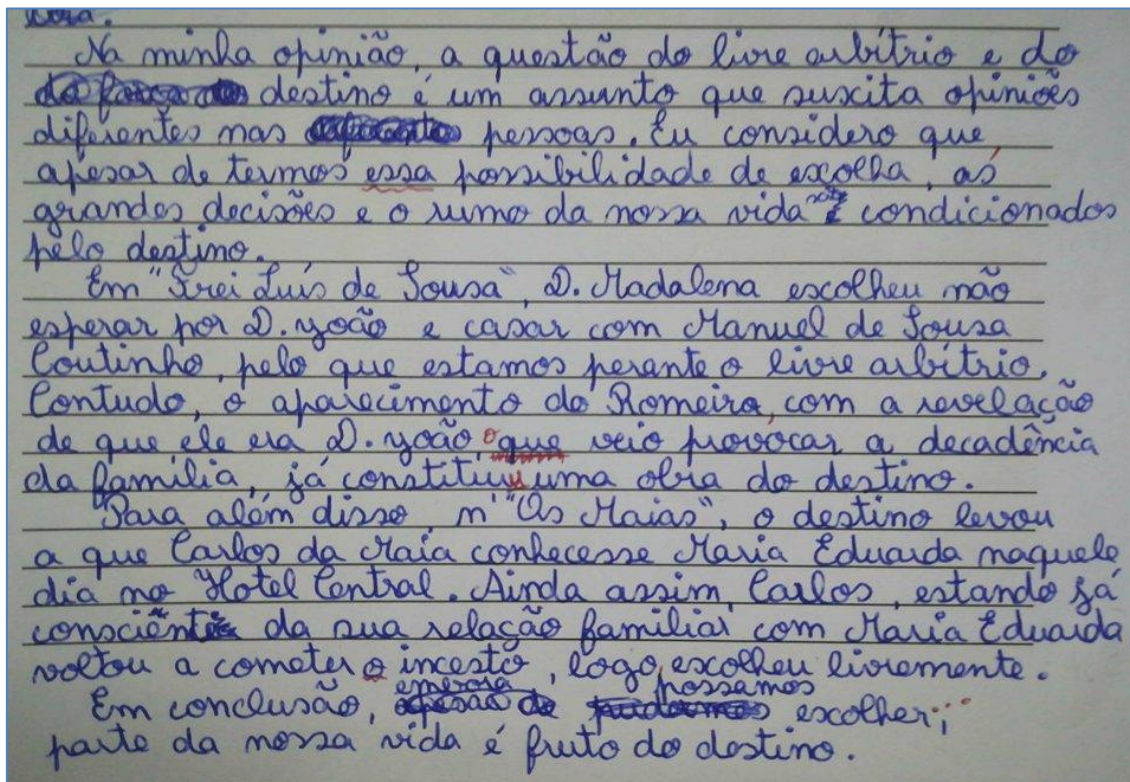 Na minha opinião, a questão do livre arbítrio e do
destino é um assunto que suscita opiniões
diferentes nas pessoas. Eu considero que
apesar de termos essa possibilidade de escolha, as
grandes decisões e o rumo da nossa vida são condicionados
pelo destino.
Em "Frei Luís de Sousa", D. Madalena escolheu não
esperar por D. João e casar com Manuel de Sousa
Coutinho, pelo que estamos perante o livre arbítrio.
Contudo, o aparecimento do Romeiro, com a revelação
de que ele era D. João, o que veio provocar a decadência
da família, já constituiu uma obra do destino.
Para além disso, n' "Os Maias", o destino levou
a que Carlos da Maia conhecesse Maria Eduarda naquele
dia no Hotel Central. Ainda assim, Carlos, estando já
consciente da sua relação familiar com Maria Eduarda
voltou a cometer o incesto, logo, escolheu livremente.
Em conclusão, embora possamos escolher,
parte da nossa vida é fruto do destino.